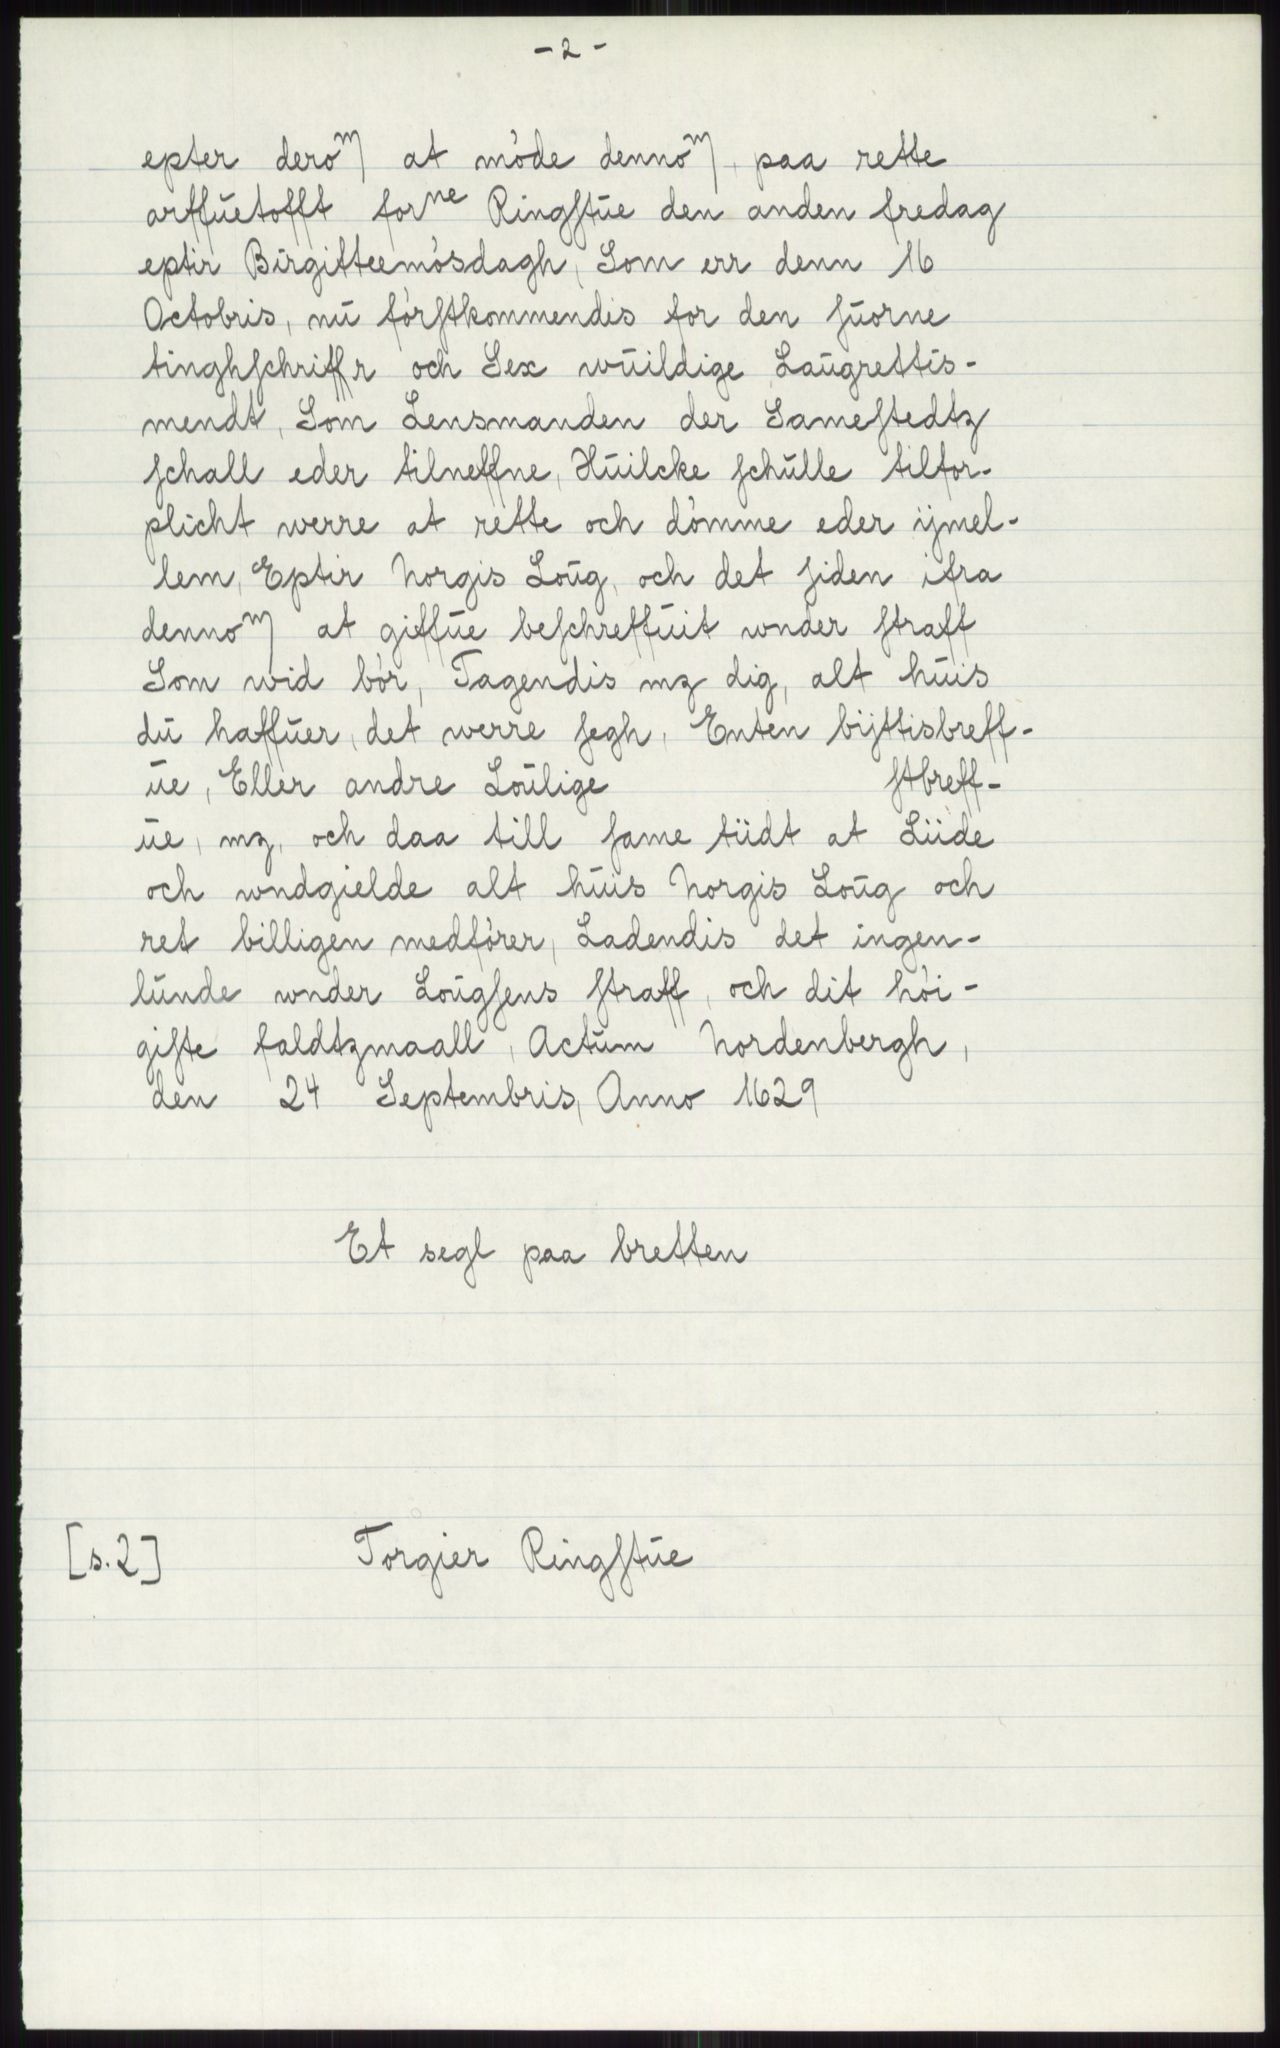 - 2 -
epter dero^m at möde denno^m, paa rette
arffuetofft for^ne Ringstue den anden fredag
eptir Birgitteemösdagh, Som err denn 16
Octobris, nu förstkommendis for den suorne
tinghschriffr och Sex wuildige Laugrettis-
mendt, Som Lensmanden der Samestedtz
schall eder tilneffne, Huilcke schulle tilfor-
plicht werre at rette och dömme eder ijmel-
lem, Eptir Norgis Loug, och det siden ifra
denno^m at giffue beschreffuit wnder straff
Som wid bör, Tagendis mz dig, alt huis
du haffuer, det werre segh, Enten bijttisbreff-
ue, Eller andre Loulige stbreff-
ue, mz, och daa till same tiidt at Liide
och wndgielde alt huis Norgis Loug och
ret billigen medförer, Ladendis det ingen-
lunde wnder Lougsens straff, och dit höi-
giste faldtzmaall, Actum Nordenbergh,
den 24 Septembris, Anno 1629
Et segl paa bretten
[s. 2] Torgier Ringstue